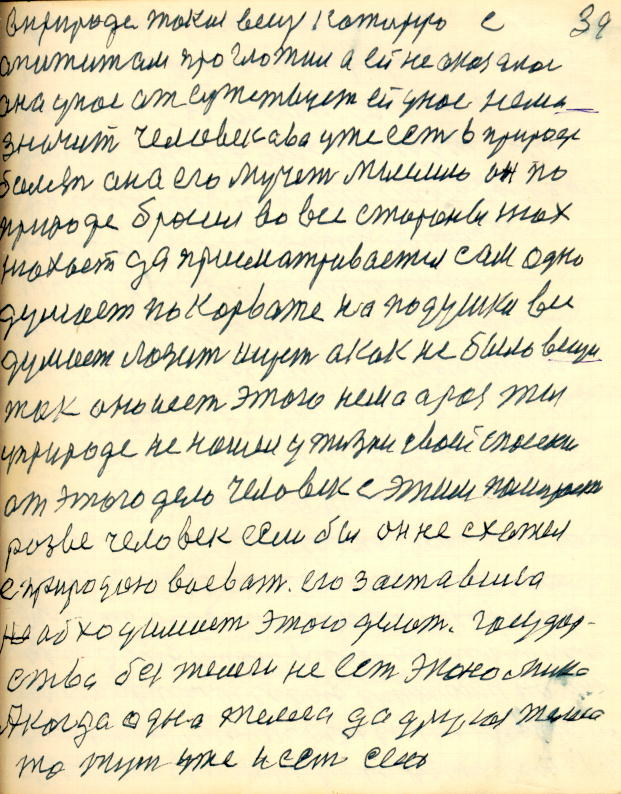 в природе такая вещ которую с 39
опититом проглотил а ей не оказалос
она у нас от сутствует ей у нас нема
значит человек ава уже ест в природе
болел она его мучет мыслию он по
природе бросил во все стороны так
так ест да присматривается сам одно
думает по кровате на подушки все
думает лазит ищет а как не было вещи
так оно нет этого нема а раз ты
у природе не нашел у жизни своей
от этого дело человек с этим
розве человек если бы он не схотел
с природою воеват. его заставила
не абходимост этого делат. государ-
ства без телеги не ест экономика
А когда одна телега да другая телега
то тут уже и ест село